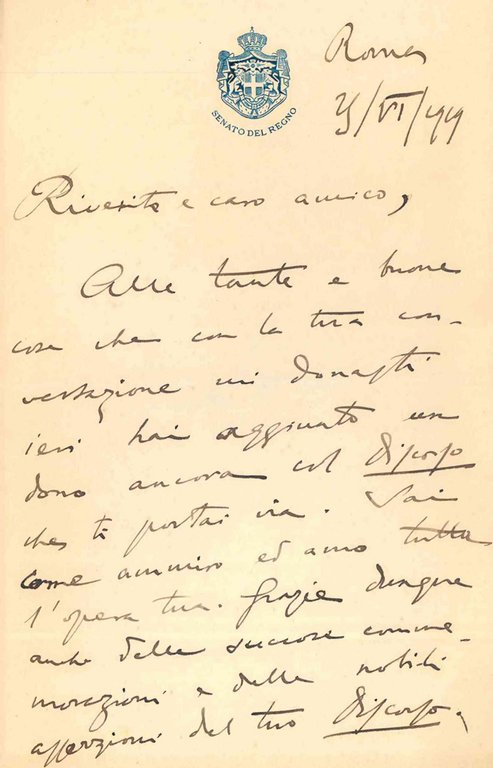 Roma
SENATO DEL REGNO
/VI/1919
Riverito e caro amico,
Alle tante e buone
cose che con la tua con-
versazione mi donasti
ieri hai aggiunto un
dono ancora col Discorso
che ti portai via. Sai
come ammiro ed amo tutta
l'opera tua. Grazie dunque
anche delle succose comme-
morazioni e delle nobili
asserzioni del tuo Discorso.